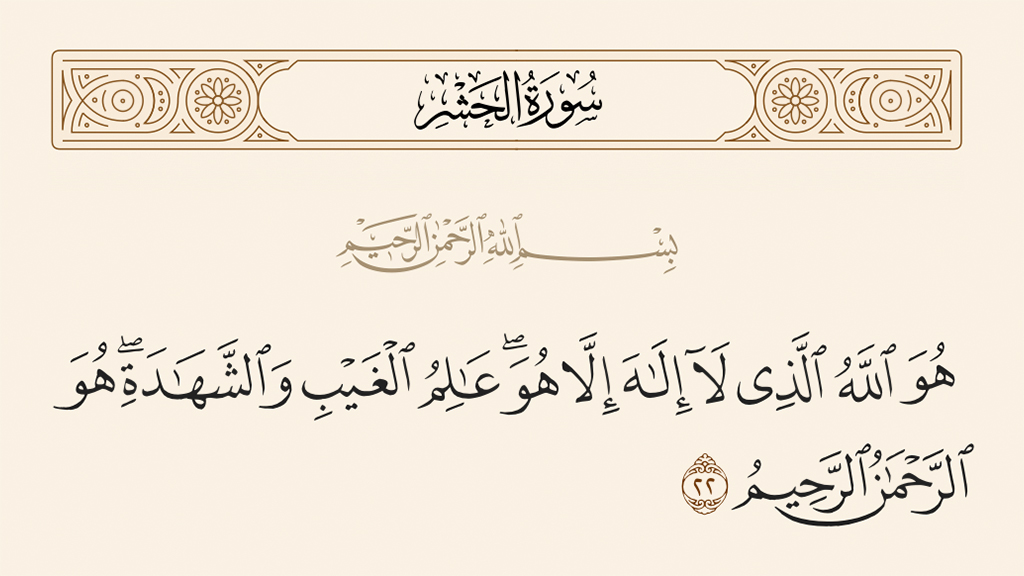 سُورَةُ الحَشْرِ
بِسْمِ اللَّهِ الرَّحْمَٰنِ الرَّحِيمِ
هُوَ ٱللَّهُ ٱلَّذِى لَآ إِلَـٰهَ إِلَّا هُوَ ۖ عَـٰلِمُ ٱلْغَيْبِ وَٱلشَّهَـٰدَةِ ۖ هُوَ
ٱلرَّحْمَـٰنُ ٱلرَّحِيمُ ٢٢